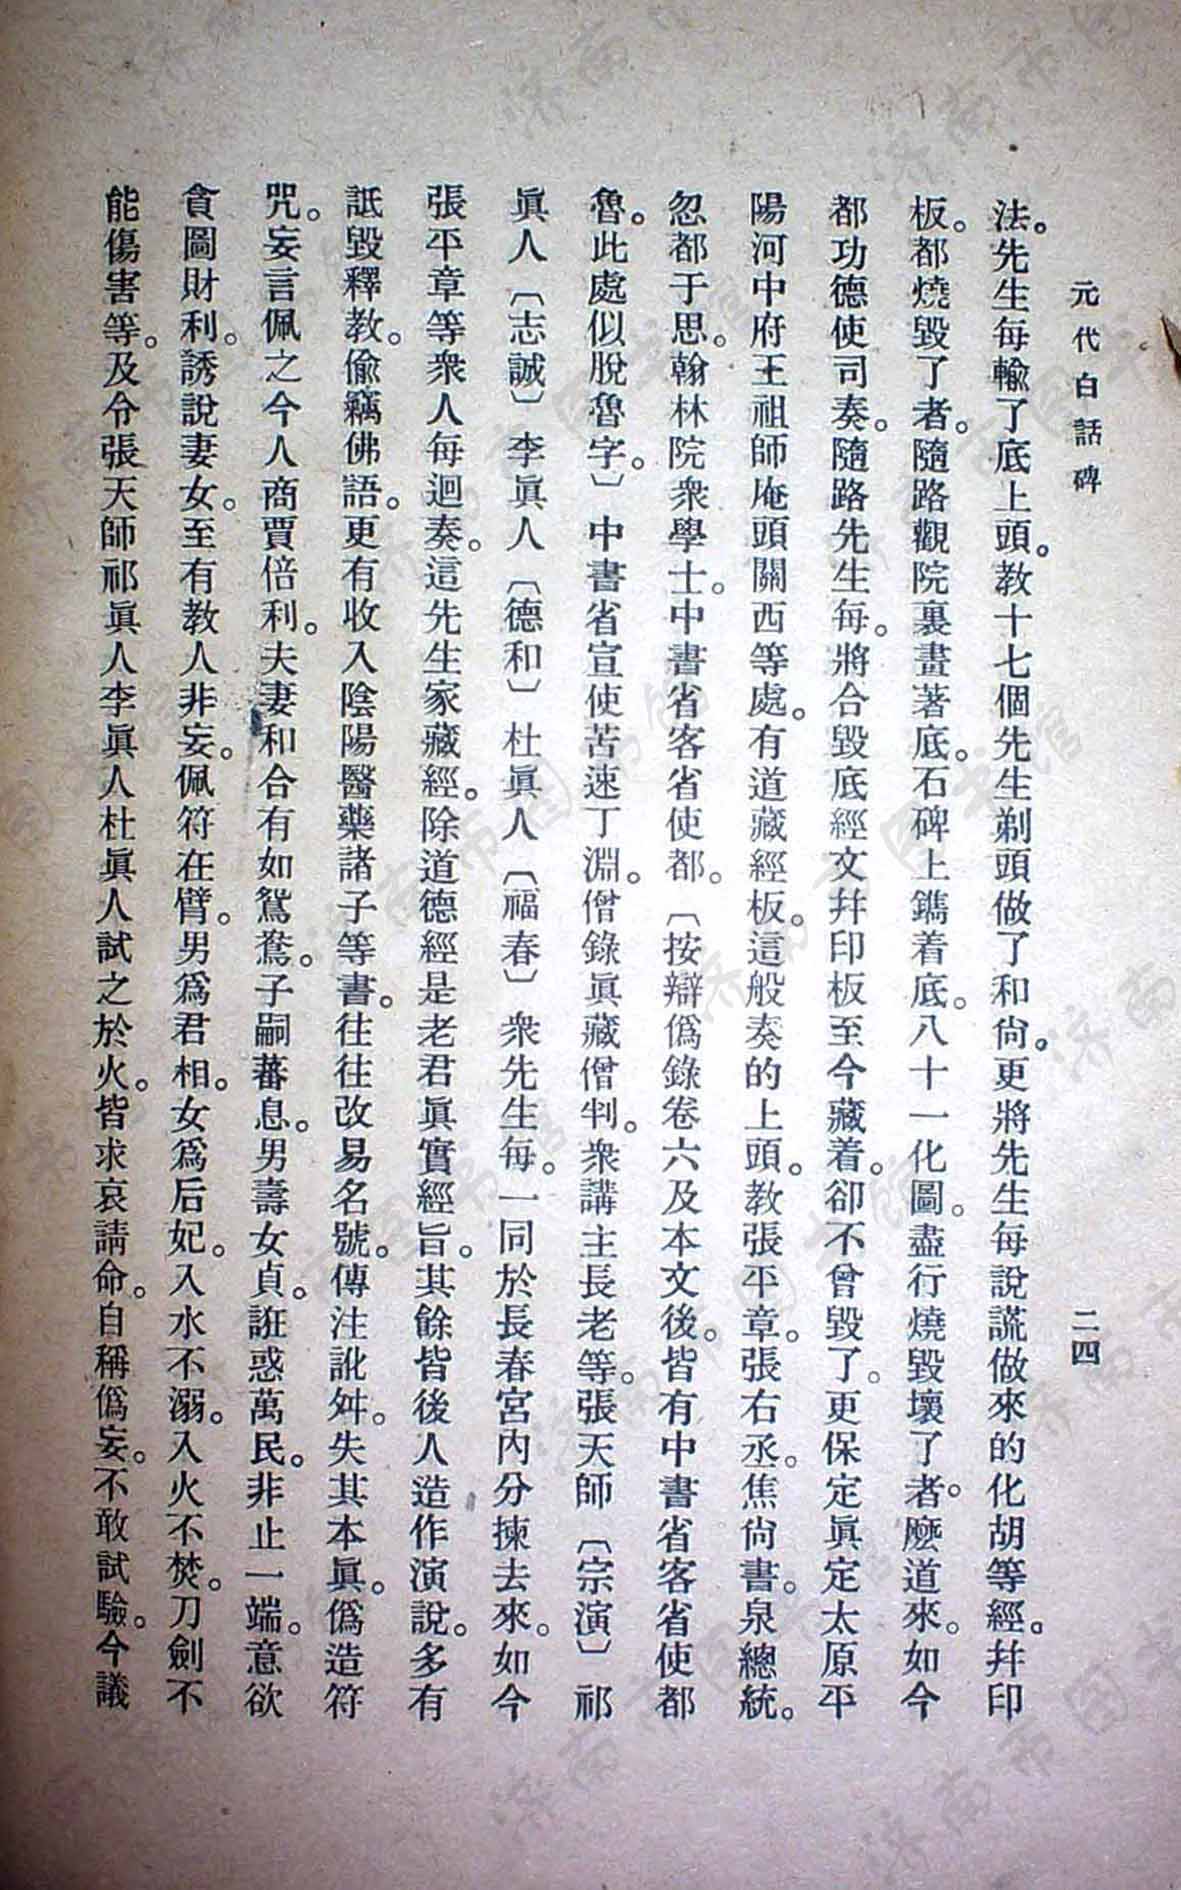 元代白話碑
二四
法。先生每輸了底上頭。教十七個先生剃頭做了和尙。更將先生每說謊做來的化胡等經。幷印
板。都燒毀了者。隨路觀院裏畫著底。石碑上鐫着底。八十一化圖。盡行燒毀壞了者。麽道來。如今
都功德使司奏。隨路先生每。將合毀底經文幷印板至今藏着。卻不曾毀了。更保定眞定太原平
陽河中府王祖師庵頭關西等處。有道藏經板。這般奏的上頭。教張平章。張右丞。焦尙書。泉總統。
忽都于思。翰林院衆學士。中書省客省使都。〔按辯僞錄卷六及本文後。皆有中書省客省使都
魯。此處似脫魯字。〕中書省宣使苦速丁淵。僧錄眞藏僧判。衆講主長老等。張天師〔宗演〕祁
眞人〔志誠〕李眞人〔德和〕杜眞人〔福春〕衆先生每。一同於長春宮內分揀去來。如今
張平章等衆人每迴奏。這先生家藏經。除道德經是老君眞實經旨。其餘皆後人造作演說。多有
詆毀釋教。偷竊佛語。更有收入陰陽醫藥諸子等書。往往改易名號。傳注訛舛。失其本眞。僞造符
咒。妄言佩之令人商賈倍利。夫妻和合有如鴛鴦。子嗣蕃息。男壽女貞。誑惑萬民。非止一端。意欲
貪圖財利。誘說妻女。至有教人非妄。佩符在臂。男爲君相。女爲后妃。入水不溺。入火不焚。刀劍不
能傷害等。及令張天師祁眞人李眞人杜眞人試之於火。皆求哀請命。自稱僞妄。不敢試驗。今議
济南市图书馆